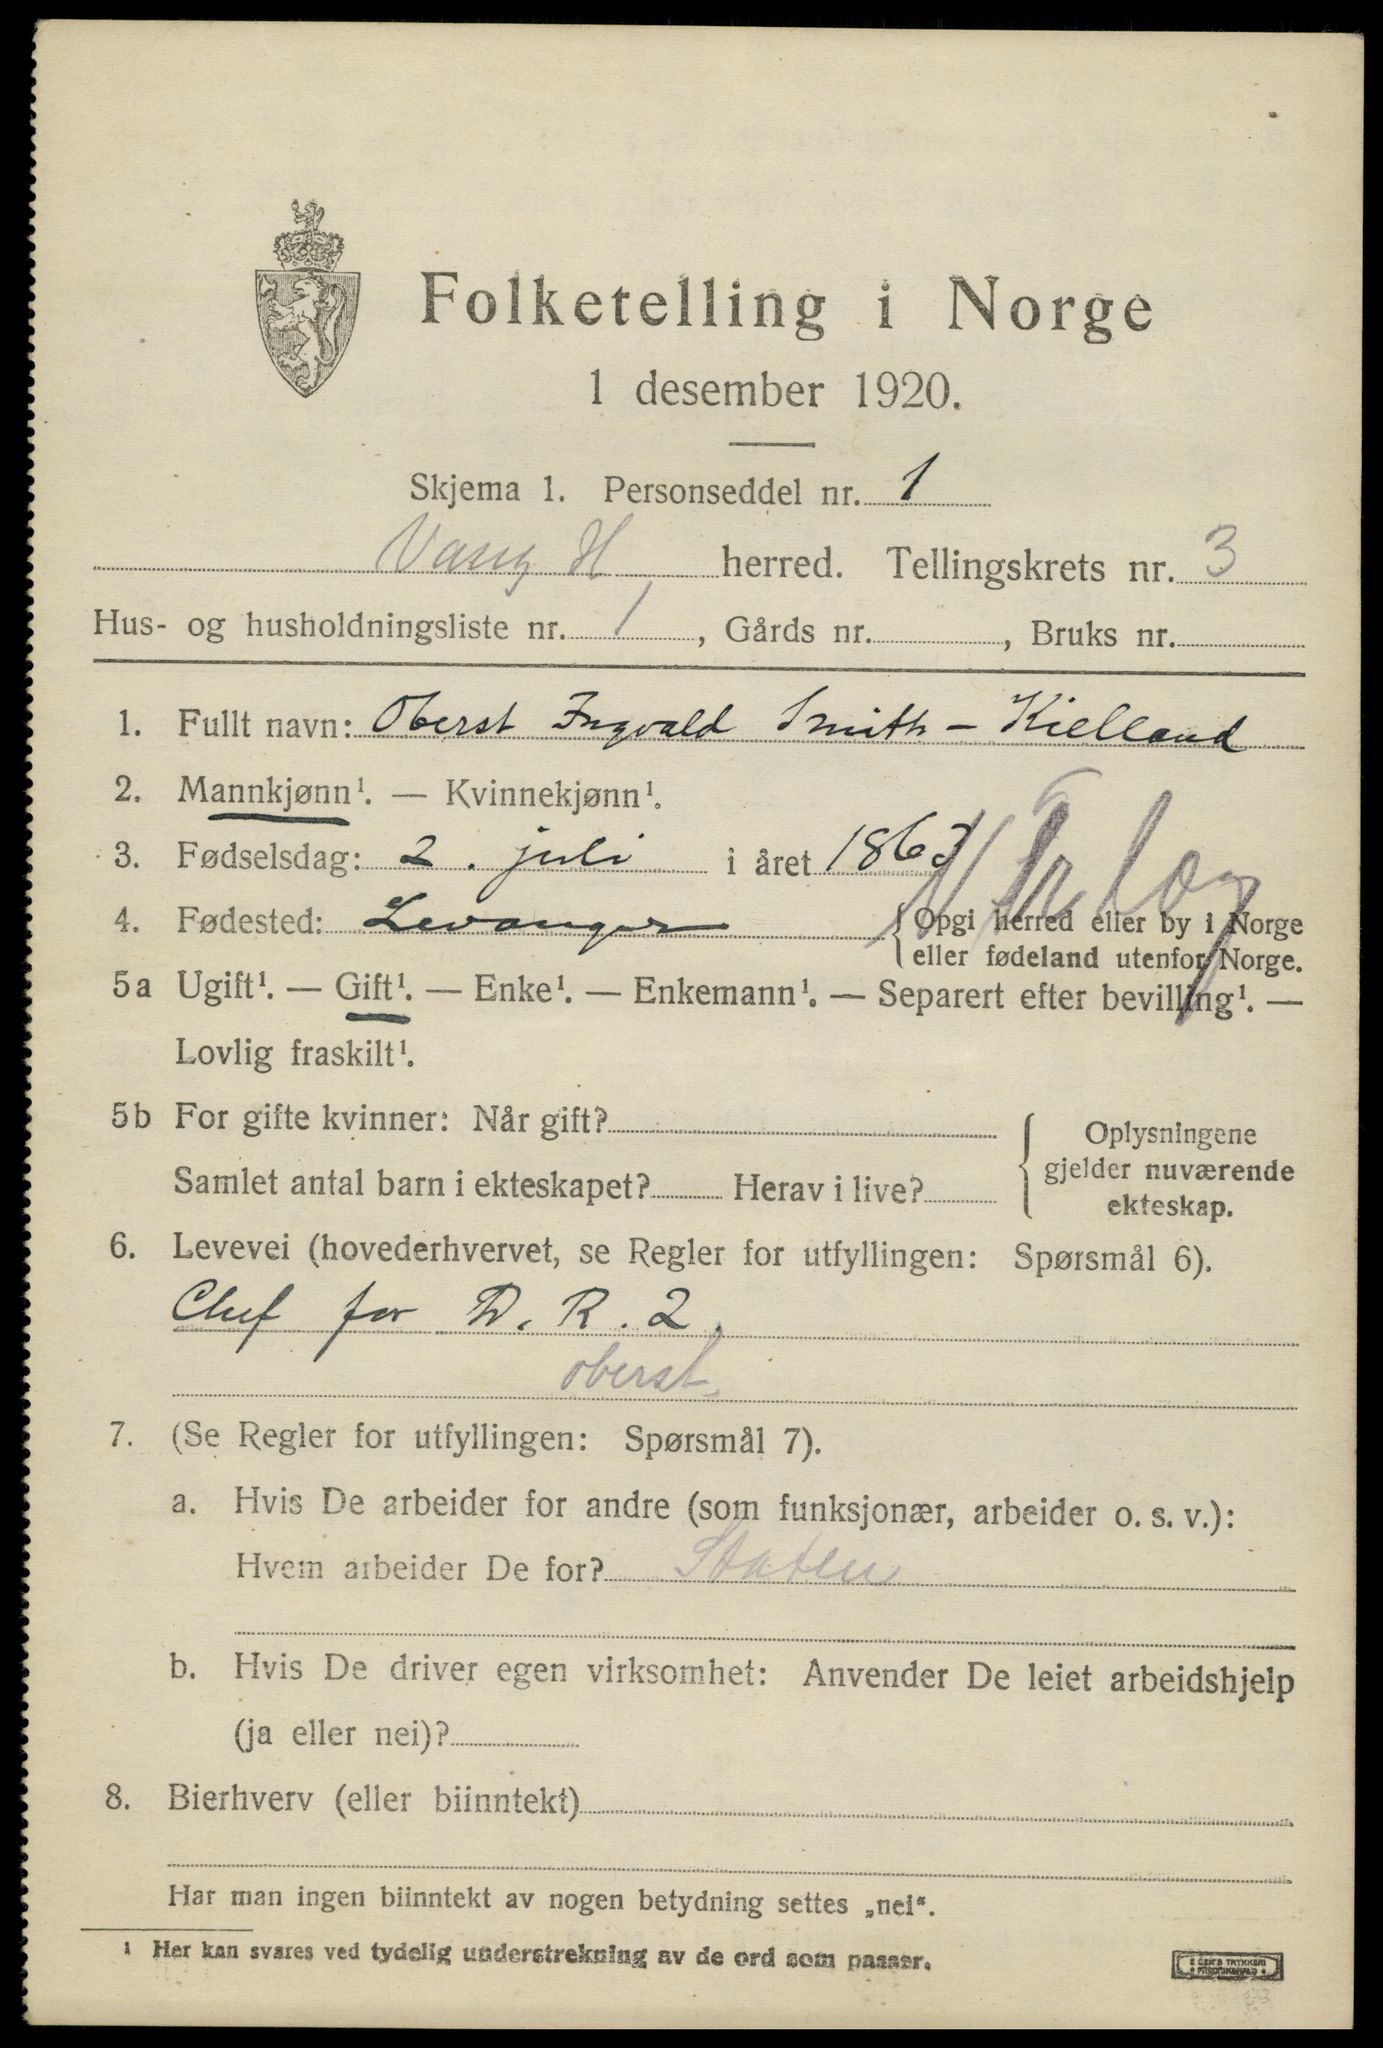 Folketelling i Norge
1 desember 1920.
Skjema 1. Personseddel nr. 1
Vang H herred. Tellingskrets nr. 3
Hus- og husholdningsliste nr. 1, Gårds nr. , Bruks nr.
1. Fullt navn: Oberst Ingvald Smith-Kielland
2. Mannkjønn¹. — Kvinnekjønn¹.
3. Fødselsdag: 2. juli i året 1863
4. Fødested: Levanger {Opgi herred eller by i Norge
eller fødeland utenfor Norge.
5a Ugift¹. — Gift¹. — Enke¹. — Enkemann¹. — Separert efter bevilling¹. —
Lovlig fraskilt¹.
5b For gifte kvinner: Når gift?
Samlet antal barn i ekteskapet? Herav i live?
{Oplysningene
gjelder nuværende
ekteskap.
6. Levevei (hovederhvervet, se Regler for utfyllingen: Spørsmål 6).
Chef for D. R. 2.
oberst.
7. (Se Regler for utfyllingen: Spørsmål 7).
a. Hvis De arbeider for andre (som funksjonær, arbeider o. s. v.):
Hvem arbeider De for? Staten
b. Hvis De driver egen virksomhet: Anvender De leiet arbeidshjelp
(ja eller nei)?
8. Bierhverv (eller biinntekt)
Har man ingen biinntekt av nogen betydning settes „nei“.
¹ Her kan svares ved tydelig understrekning av de ord som passer.